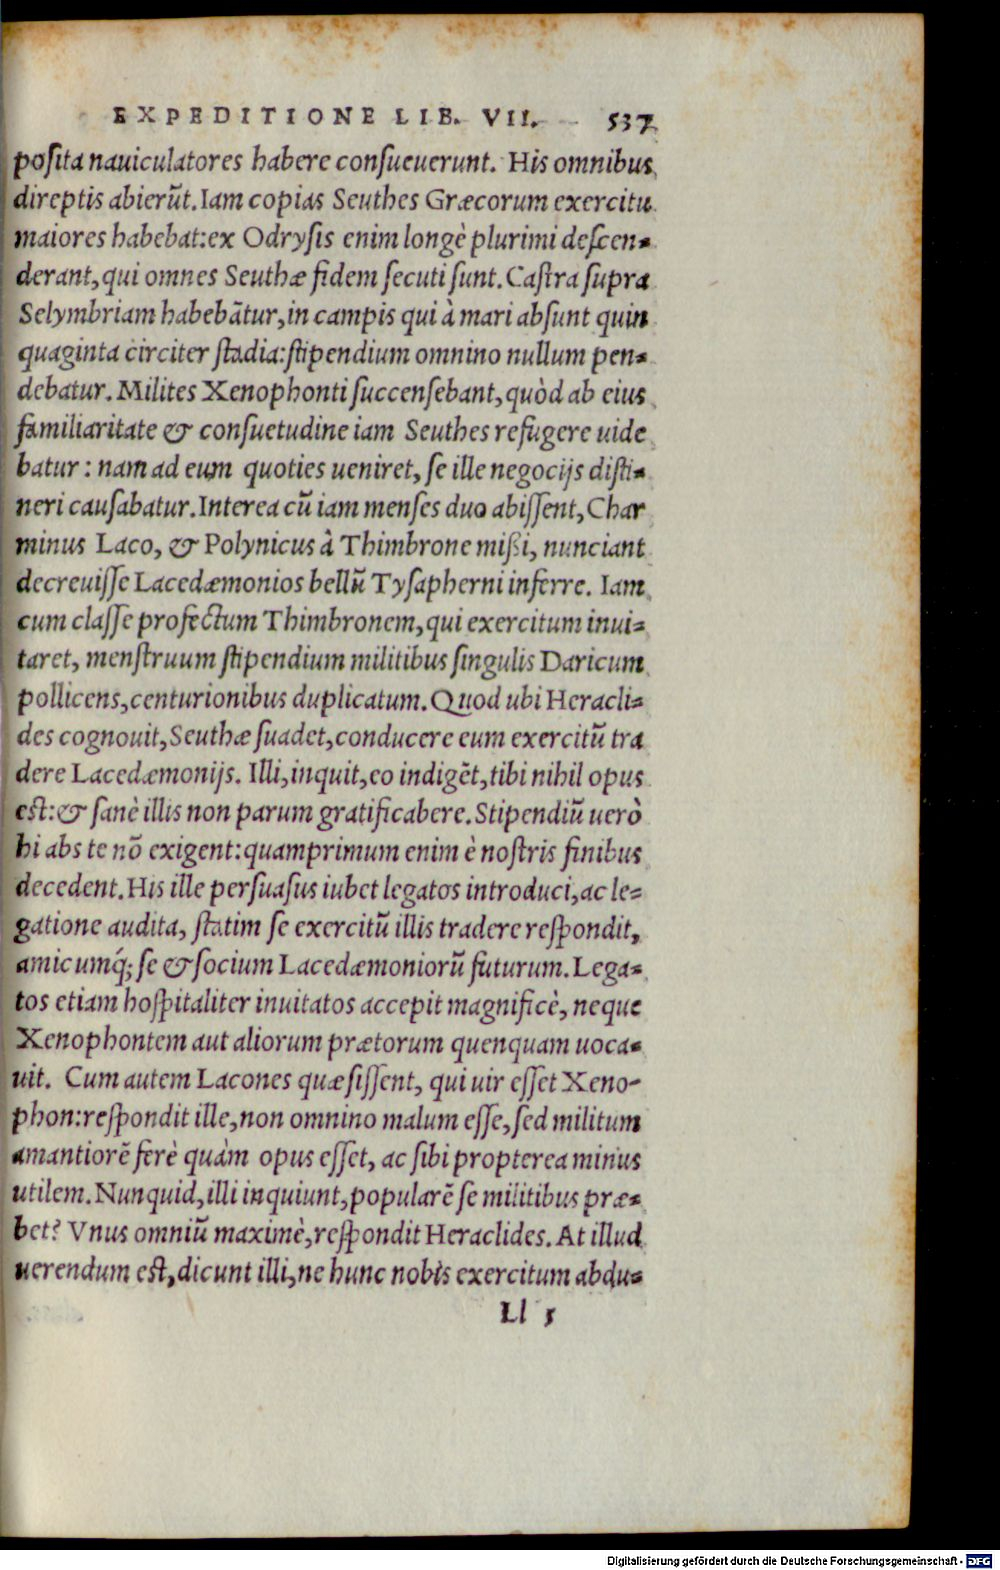 EXPEDITIONE LIB. VII. 537
posita nauiculatores habere consueuerunt. His omnibus
direptis abierūt. Iam copias Seuthes Græcorum exercitu
maiores habebat: ex Odrysis enim longè plurimi descen-
derant, qui omnes Seuthæ fidem secuti sunt. Castra supra
Selymbriam habebātur, in campis qui à mari absunt quin
quaginta circiter stadia: stipendium omnino nullum pen-
debatur. Milites Xenophonti succensebant, quòd ab eius
familiaritate & consuetudine iam Seuthes refugere uide
batur: nam ad eum quoties ueniret, se ille negocijs disti-
neri causabatur. Interea cū iam menses duo abissent, Char
minus Laco, & Polynicus à Thimbrone mißi, nunciant
decreuisse Lacedæmonios bellū Tysapherni inferre. Iam
cum classe profectum Thimbronem, qui exercitum inui-
taret, menstruum stipendium militibus singulis Daricum
pollicens, centurionibus duplicatum. Quod ubi Heracli-
des cognouit, Seuthæ suadet, conducere eum exercitū tra
dere Lacedæmonijs. Illi, inquit, eo indigēt, tibi nihil opus
est: & sanè illis non parum gratificabere. Stipendiū uerò
hi abs te nō exigent: quamprimum enim è nostris finibus
decedent. His ille persuasus iubet legatos introduci, ac le-
gatione audita, statim se exercitū illis tradere respondit,
amicumq́; se & socium Lacedæmoniorū futurum. Lega-
tos etiam hospitaliter inuitatos accepit magnificè, neque
Xenophontem aut aliorum prætorum quenquam uoca-
uit. Cum autem Lacones quæsissent, qui uir esset Xeno-
phon: respondit ille, non omnino malum esse, sed militum
amantiorē ferè quàm opus esset, ac sibi propterea minus
utilem. Nunquid, illi inquiunt, popularē se militibus præ-
bet? Vnus omniū maximè, respondit Heraclides. At illud
uerendum est, dicunt illi, ne hunc nobis exercitum abdu-
Ll 5
Digitalisierung gefördert durch die Deutsche Forschungsgemeinschaft - DFG